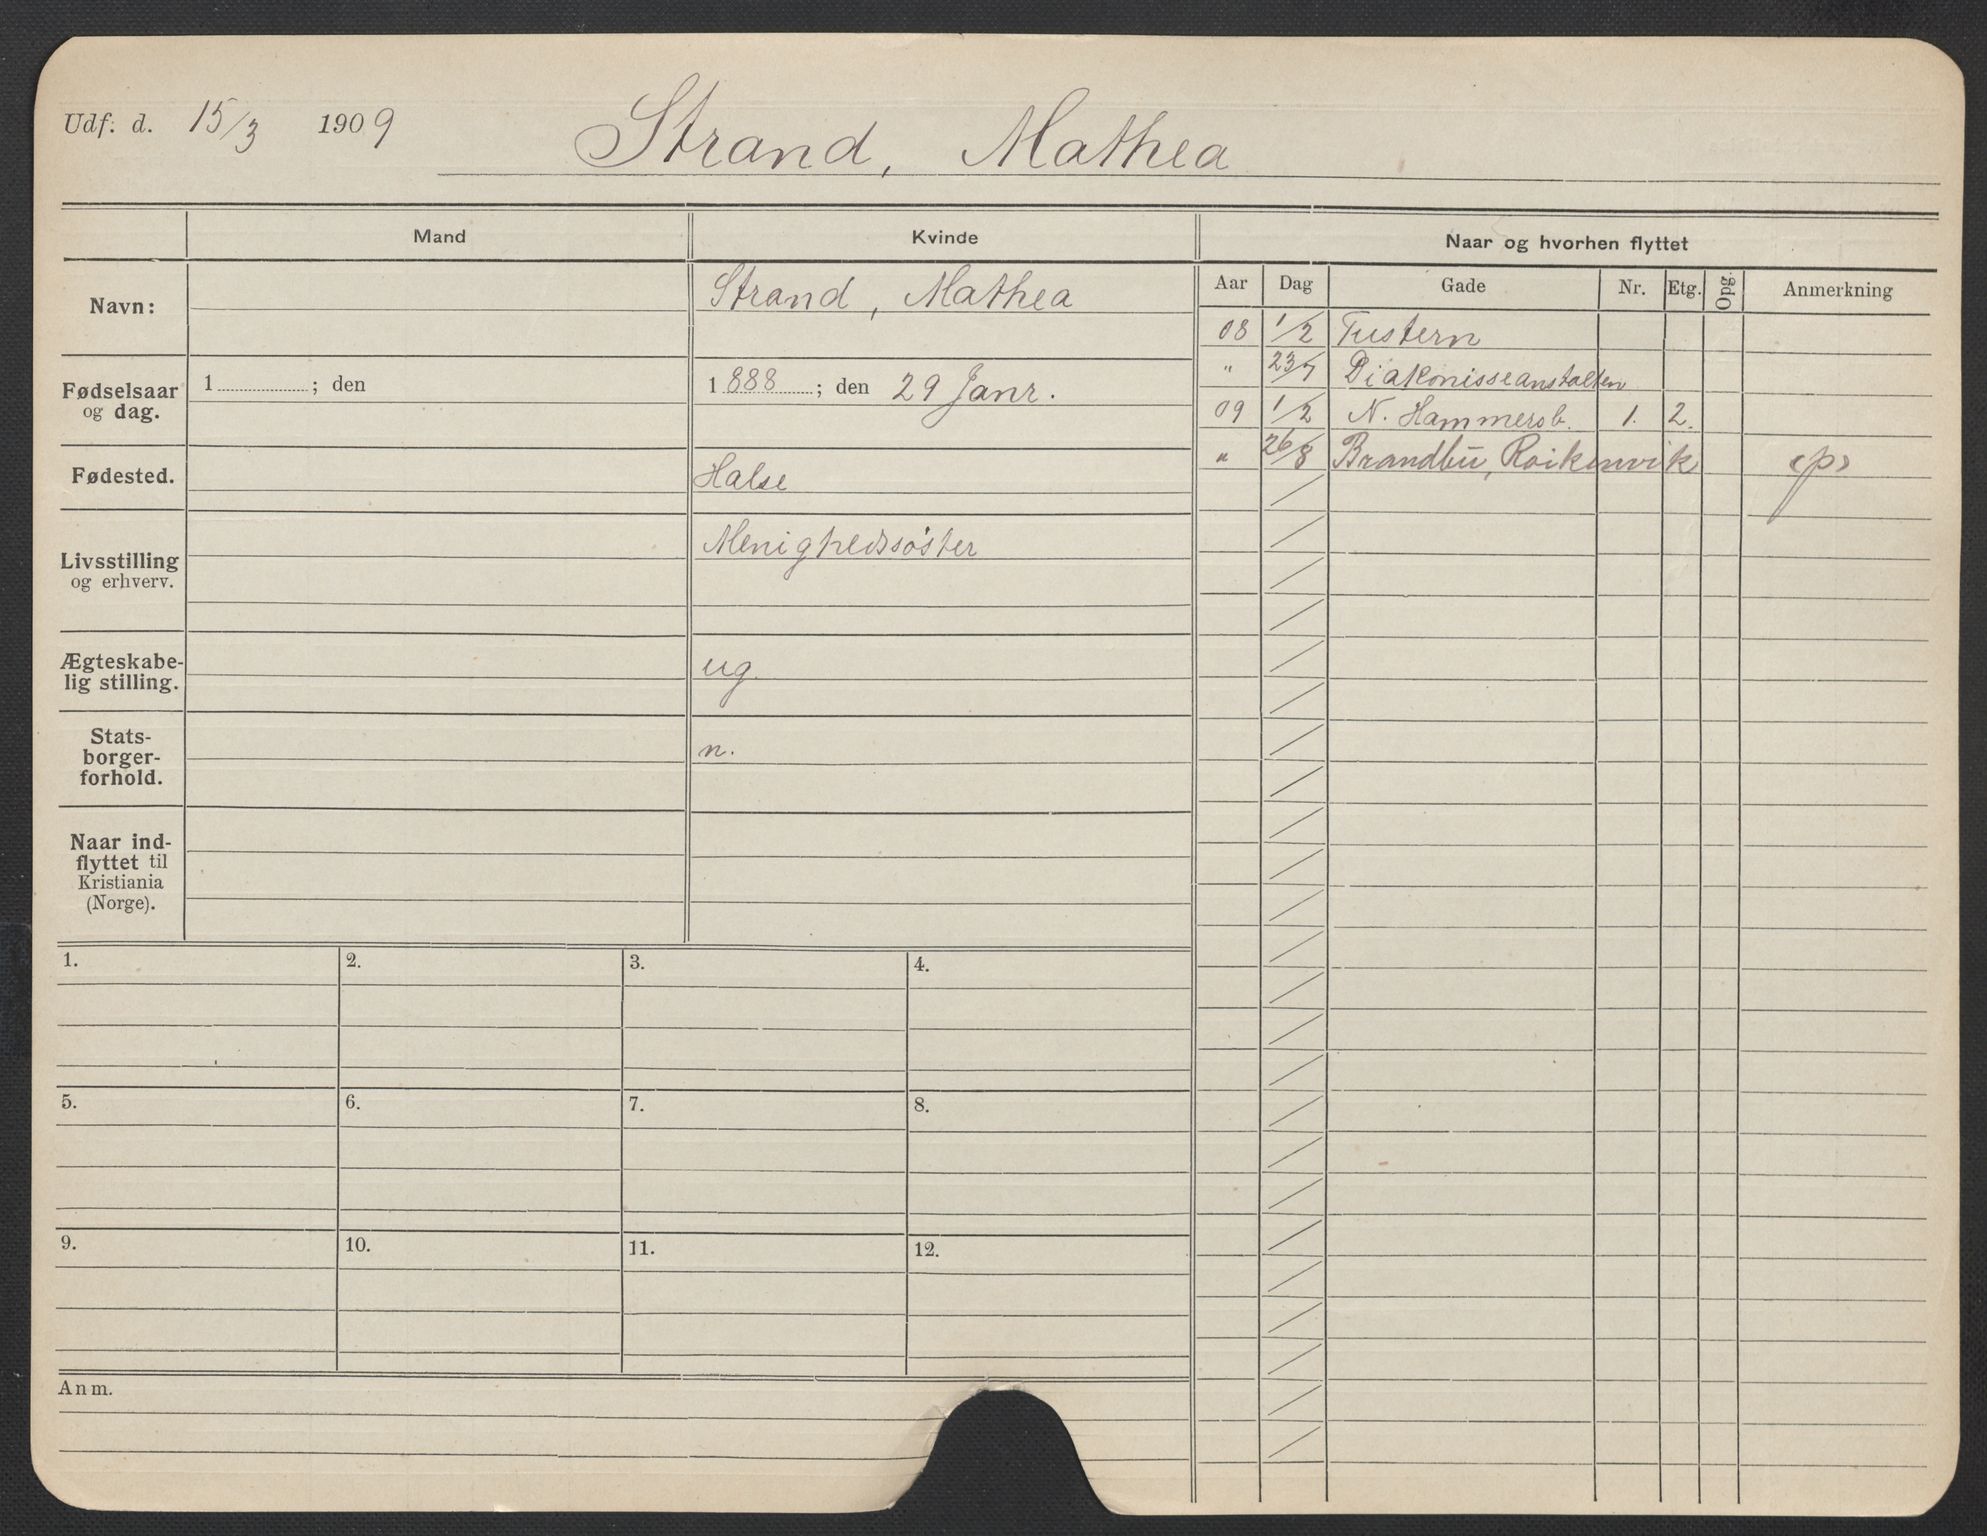 Udf. d. 15/3 1909 Strand, Mathea
Mand Kvinde Naar og hvorhen flyttet
Aar Dag Gade Nr. Etg. Opg. Anmerkning
Navn: Strand, Mathea
Fødselsaar og dag. 1 ; den 1888 ; den 29 Janr.
Fødested. Halse
Livsstilling og erhverv. Menighedssøster
Ægteskabe-
lig stilling. ug.
Stats-
borger-
forhold. n.
Naar ind-
flyttet til
Kristiania
(Norge).
08 1/2 Tustern
" 23/7 Diakonisseanstalten
09 1/2 N. Hammersb. 1. 2.
" 26/8 Brandbu, Roikenvik (p)
1. 2. 3. 4.
5. 6. 7. 8.
9. 10. 11. 12.
Anm.